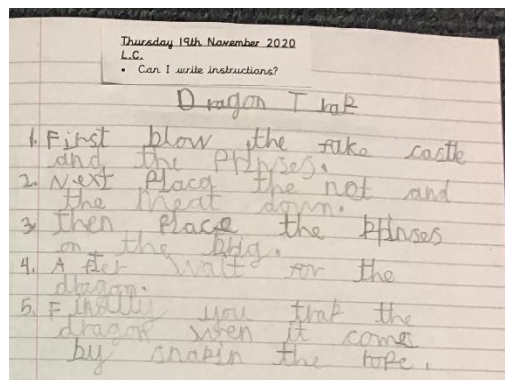 Thursday 19th November 2020
L.C.
• Can I write instructions?
Dragon Trap
1. First blow the fake castle
and the Prinses.
2. Next Place the net and
the meat down.
3. then place the Prinses
on the brig.
4. After wait for the
dragon.
5. Finally you trap the
dragon wen it comes
by snapin the rope.